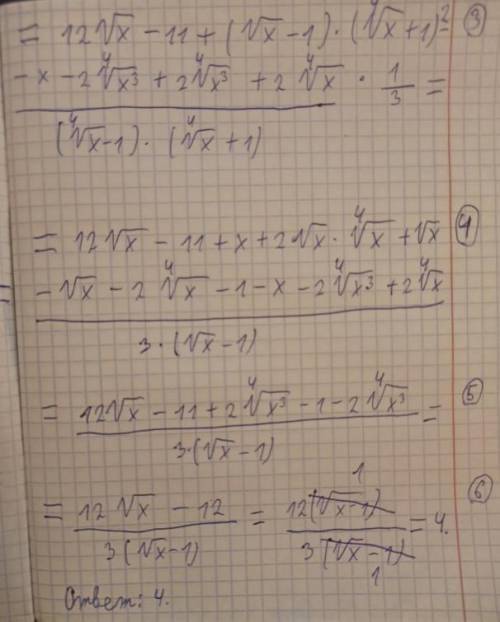 = 12√x − 11 + (√x − 1) · (⁴√x + 1)² ③
− x − 2⁴√x³ + 2⁴√x³ + 2⁴√x · 1/3 =
(⁴√x − 1) · (⁴√x + 1)
= 12√x − 11 + x + 2√x · ⁴√x + √x ④
− √x − 2⁴√x − 1 − x − 2⁴√x³ + 2⁴√x
3 · (√x − 1)
= 12√x − 11 + 2⁴√x³ − 1 − 2⁴√x³ = ⑤
3·(√x − 1)
1 ⑥
= 12√x − 12 = 12(√x − 1) = 4.
3(√x − 1) 3(√x − 1)
1
Ответ: 4.